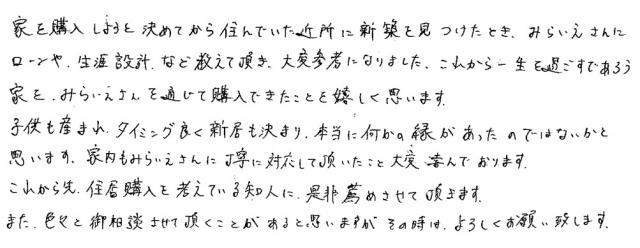 家を購入しようと決めてから住んでいた近所に新築を見つけたとき、みらいえさんに
ローンや、生涯設計、など教えて頂き、大変参考になりました、これから一生を過ごすであろう
家を、みらいえさんを通じて購入できたことを嬉しく思います。
子供も産まれ、タイミング良く新居も決まり、本当に何かの縁があったのではないかと
思います。家内もみらいえさんに丁寧に対応して頂いたこと大変喜んでおります。
これから先、住居購入を考えている知人に、是非薦めさせて頂きます。
また、色々と御相談させて頂くことがあると思いますがその時は、よろしくお願い致します。